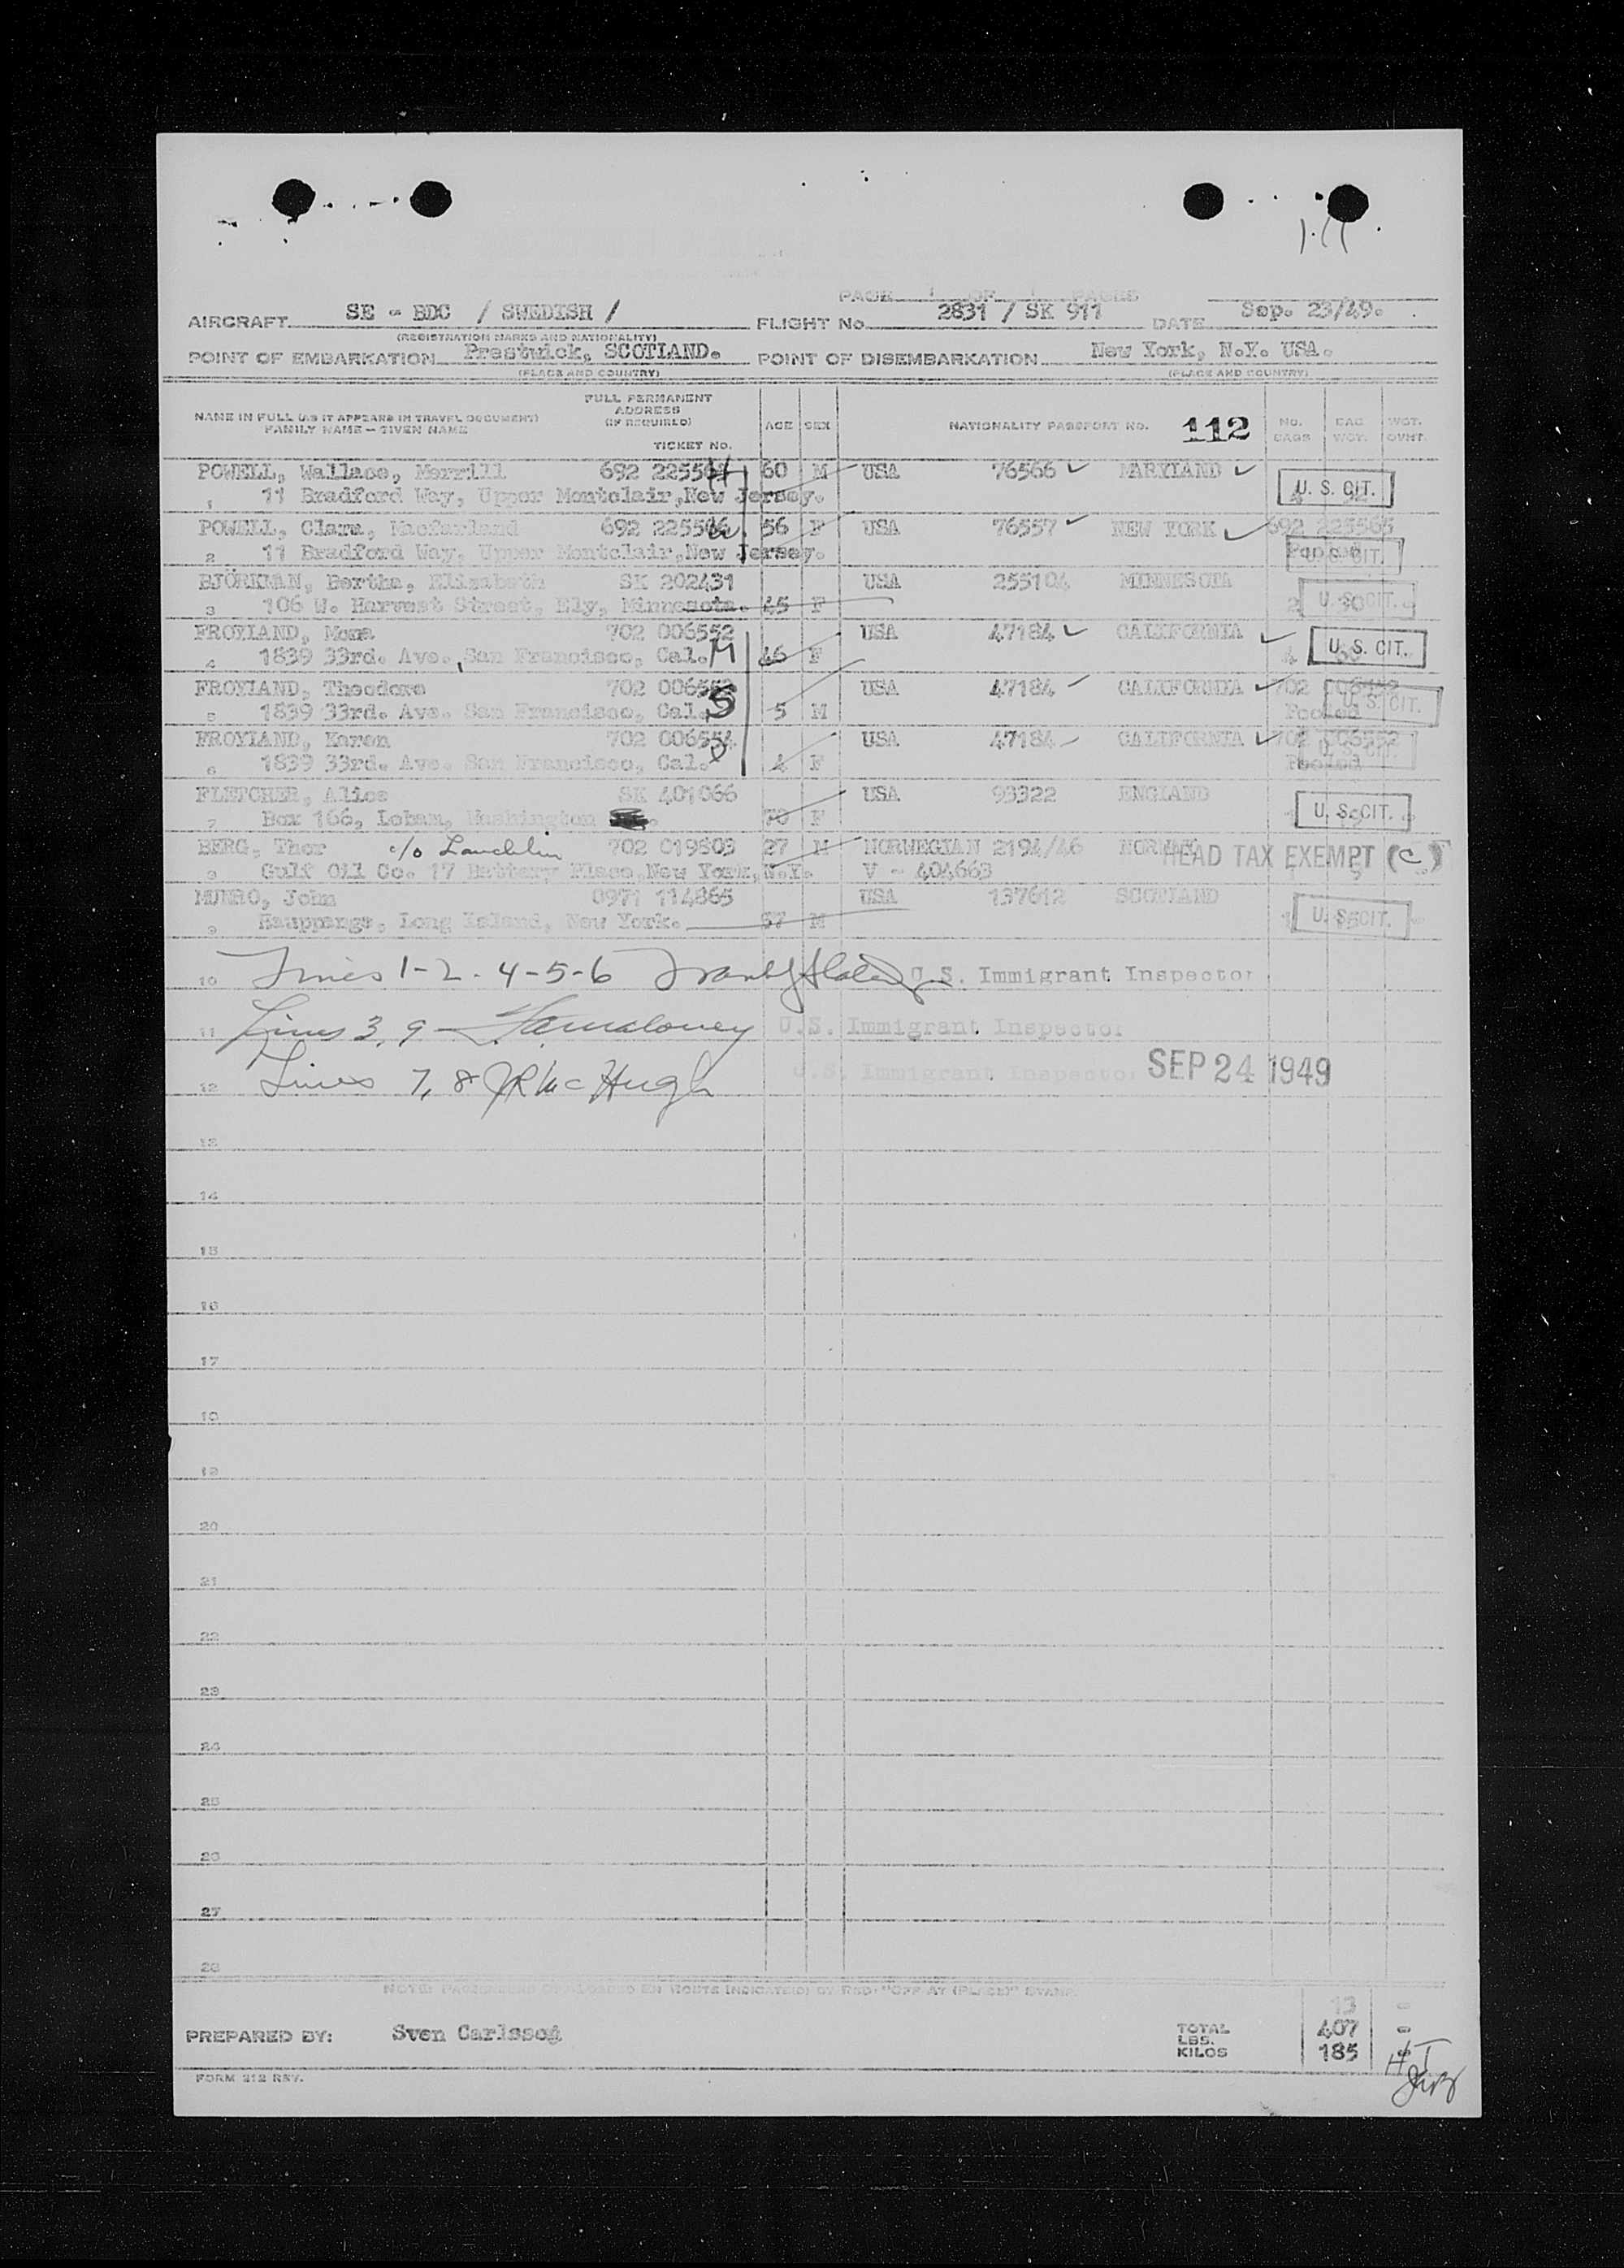 PAGE OF PAGES
AIRCRAFT SE - BDC / SWEDISH / FLIGHT No. 2831 / SK 911 DATE Sep. 23/49.
(REGISTRATION MARKS AND NATIONALITY)
POINT OF EMBARKATION Prestwick, SCOTLAND. POINT OF DISEMBARKATION New York, N.Y. USA.
(PLACE AND COUNTRY) (PLACE AND COUNTRY)
NAME IN FULL (AS IT APPEARS IN TRAVEL DOCUMENT)
FAMILY NAME - GIVEN NAME
FULL PERMANENT
ADDRESS
(IF REQUIRED)
TICKET No. AGE SEX NATIONALITY PASSPORT No. 112 NO. BAGS BAG WGT. WGT. OVWT.
POWELL, Wallace, Merrill 692 2255 H 60 M USA 76566 MARYLAND
1 11 Bradford Way, Upper Montclair, New Jersey. U. S. CIT.
POWELL, Clara, Macfarland 692 2255 W. 56 F USA 76557 NEW YORK 692 225565
2 11 Bradford Way, Upper Montclair, New Jersey. U. S. CIT.
BJÖRKMAN, Bertha, Elizabeth SK 202431 USA 255104 MINNESOTA
3 106 W. Harvest Street, Ely, Minnesota. 45 F 2 U. S. CIT.
FROYLAND, Mona 702 006552 USA 47184 CALIFORNIA
4 1839 33rd. Ave., San Francisco, Cal. M 46 F 4 U. S. CIT.
FROYLAND, Theodore 702 00655 USA 47184 CALIFORNIA 702
5 1839 33rd. Ave. San Francisco, Cal. S 5 M Pooled U. S. CIT.
FROYLAND, Karen 702 006554 USA 47184 CALIFORNIA 702 006552
6 1839 33rd. Ave. San Francisco, Cal. D 4 F Pooled
FLETCHER, Alice SK 401066 USA 93322 ENGLAND
7 Box 166, Lebam, Washington 70 F U. S. CIT.
BERG, Thor c/o Lauchlin 702 019803 27 M NORWEGIAN 2194/46 NORWAY HEAD TAX EXEMPT (C)
8 Gulf Oil Co. 17 Battery Place, New York, N.Y. V - 404663
MUNRO, John 0971 114865 USA 137612 SCOTLAND
9 Hauppauge, Long Island, New York. 57 M 1 U. S. CIT.
10 Lines 1-2-4-5-6 U.S. Immigrant Inspector
11 Lines 3, 9 - U.S. Immigrant Inspector
12 Lines 7, 8 JR McHugh U.S. Immigrant Inspector SEP 24 1949
13
14
15
16
17
18
19
20
21
22
23
24
25
26
27
28
NOTE: PASSENGERS OFF-LOADED EN ROUTE INDICATED BY RED "OFF AT (PLACE)" STAMP.
13
PREPARED BY: Sven Carlsson TOTAL LBS. 407
KILOS 185
FORM 212 REV.